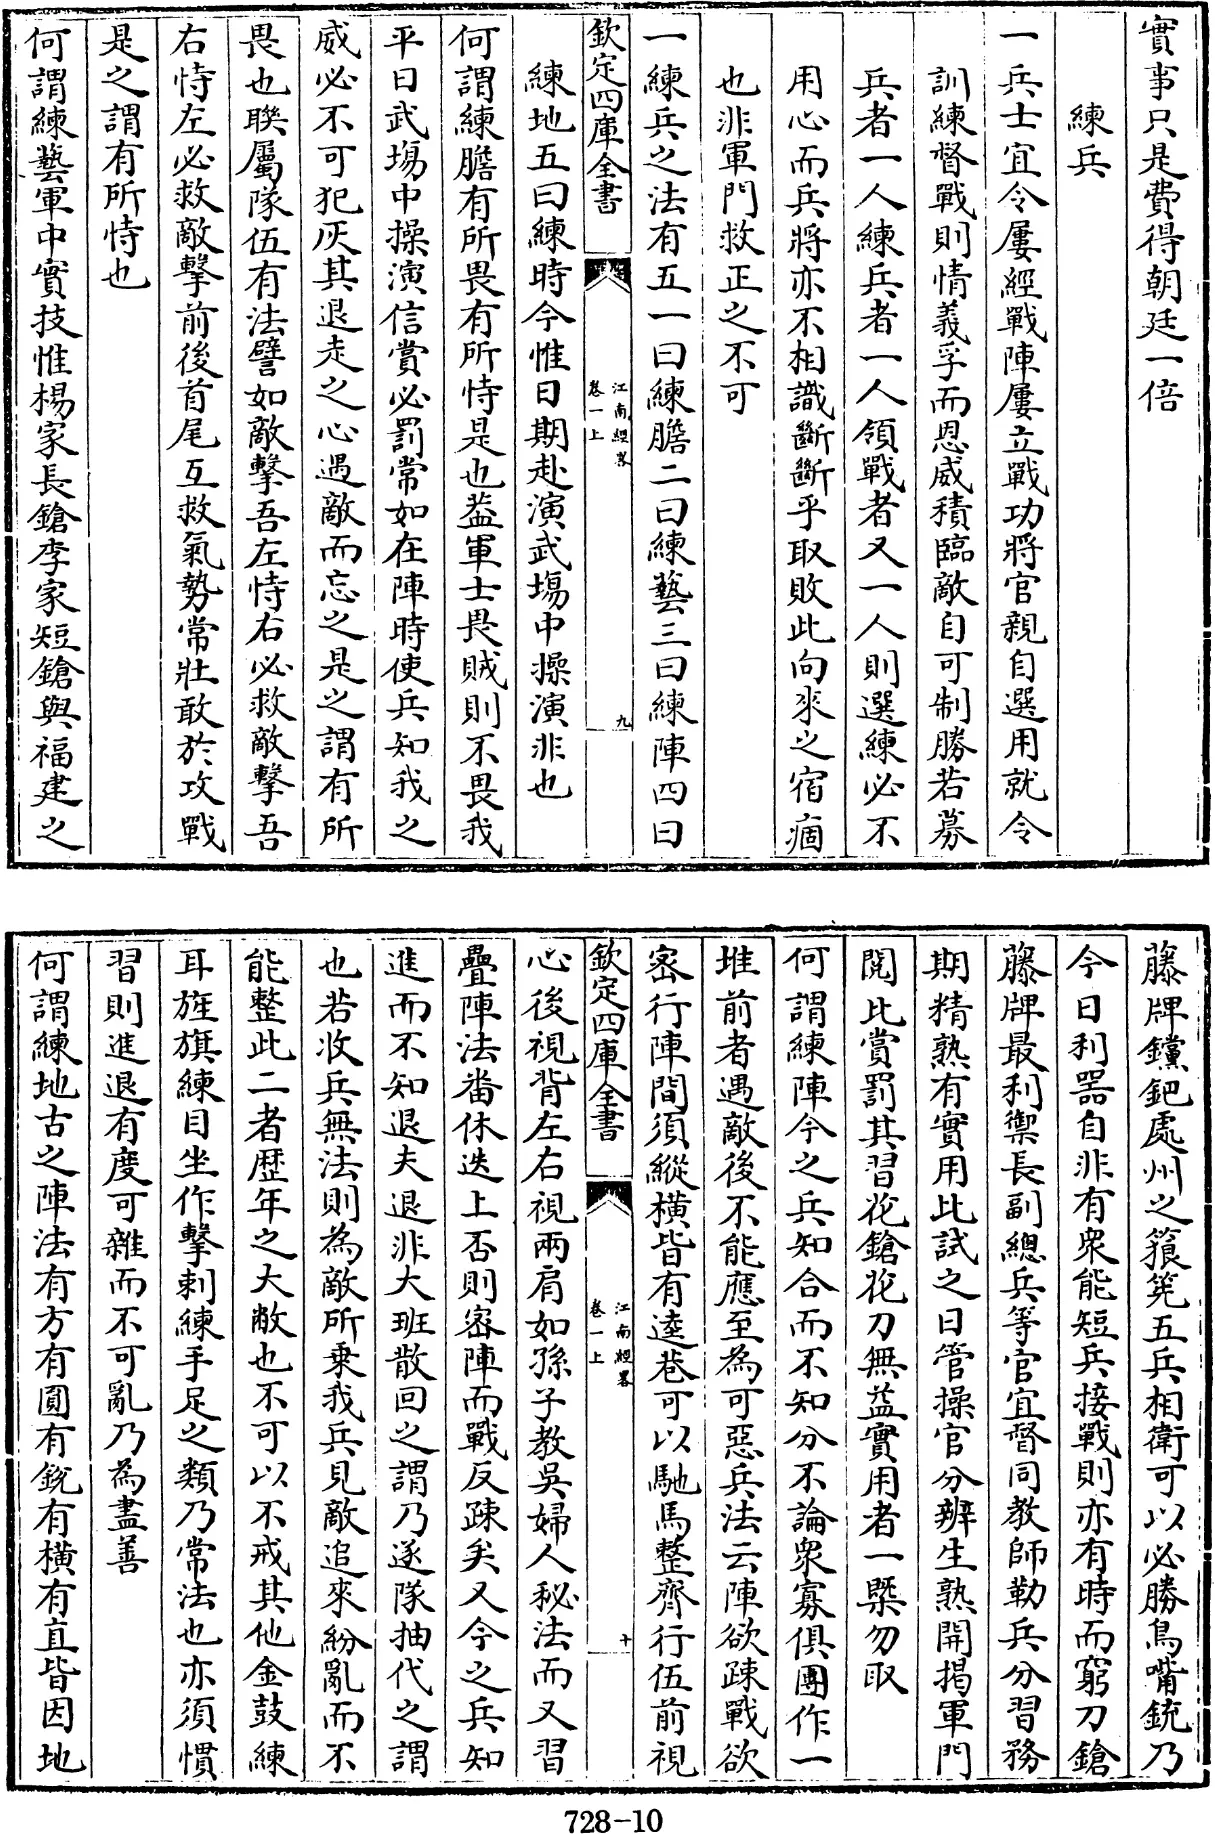 實事只是費得朝廷一倍
練兵
一兵士宜令屢經戰陣屢立戰功將官親自選用就令
訓練督戰則情義孚而恩威積臨敵自可制勝若募
兵者一人練兵者一人領戰者又一人則選練必不
用心而兵將亦不相識斷斷乎取敗此向來之宿痼
也非軍門救正之不可
一練兵之法有五一曰練膽二曰練藝三曰練陣四曰
欽定四庫全書
江南經畧
卷一上
九
練地五曰練時今惟日期赴演武塲中操演非也
何謂練膽有所畏有所恃是也葢軍士畏賊則不畏我
平日武塲中操演信賞必罰常如在陣時使兵知我之
威必不可犯灰其退走之心遇敵而忘之是之謂有所
畏也聯屬隊伍有法譬如敵擊吾左恃右必救敵擊吾
右恃左必救敵擊前後首尾互救氣勢常壯敢於攻戰
是之謂有所恃也
何謂練藝軍中實技惟楊家長鎗李家短鎗與福建之
藤牌钂鈀處州之筤筅五兵相衛可以必勝鳥嘴銃乃
今日利器自非有衆能短兵接戰則亦有時而窮刀鎗
藤牌最利禦長副總兵等官宜督同教師勒兵分習務
期精熟有實用比試之日管操官分辨生熟開揭軍門
閱比賞罰其習花鎗花刀無益實用者一槩勿取
何謂練陣今之兵知合而不知分不論衆寡俱團作一
堆前者遇敵後不能應至為可惡兵法云陣欲踈戰欲
密行陣間須縱橫皆有逵巷可以馳馬整齊行伍前視
欽定四庫全書
江南經畧
卷一上
十
心後視背左右視兩肩如孫子教吳婦人秘法而又習
疊陣法畨休迭上否則密陣而戰反踈矣又今之兵知
進而不知退夫退非大班散回之謂乃逐隊抽代之謂
也若收兵無法則為敵所乗我兵見敵追來紛亂而不
能整此二者歷年之大敝也不可以不戒其他金鼓練
耳旌旗練目坐作擊刺練手足之類乃常法也亦須慣
習則進退有度可雜而不可亂乃為盡善
何謂練地古之陣法有方有圓有銳有橫有直皆因地
728-10